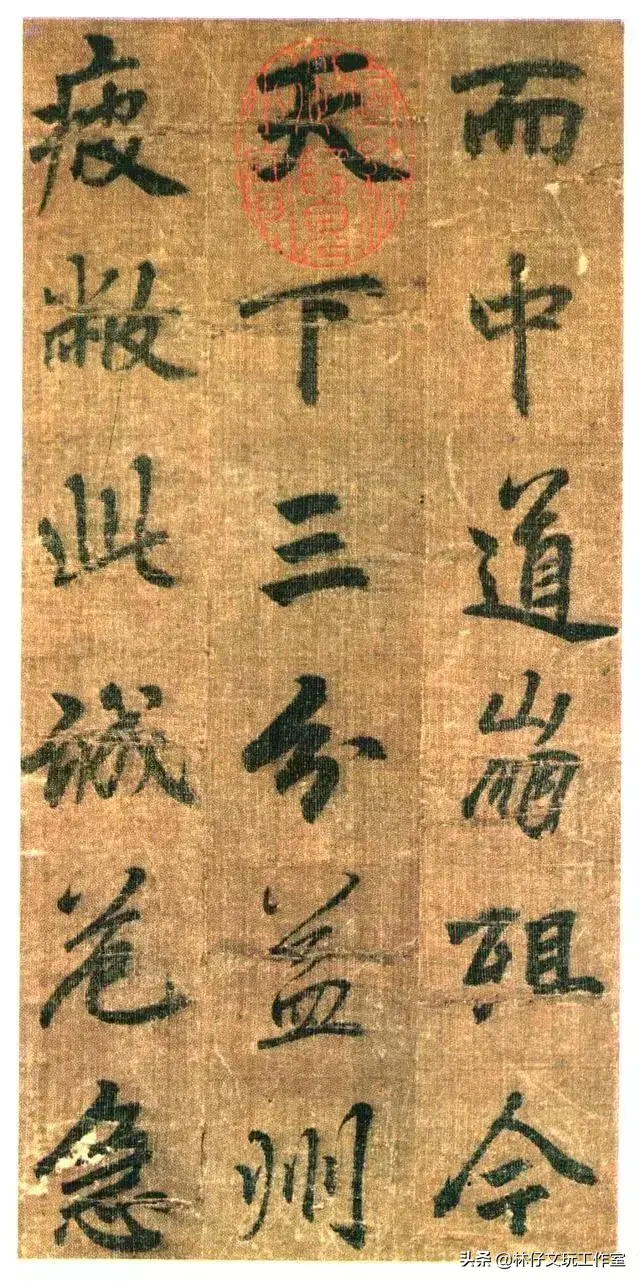 而中道崩殂今
天下三分益州
疲敝此誠危急
头条 @林仔文玩工作室